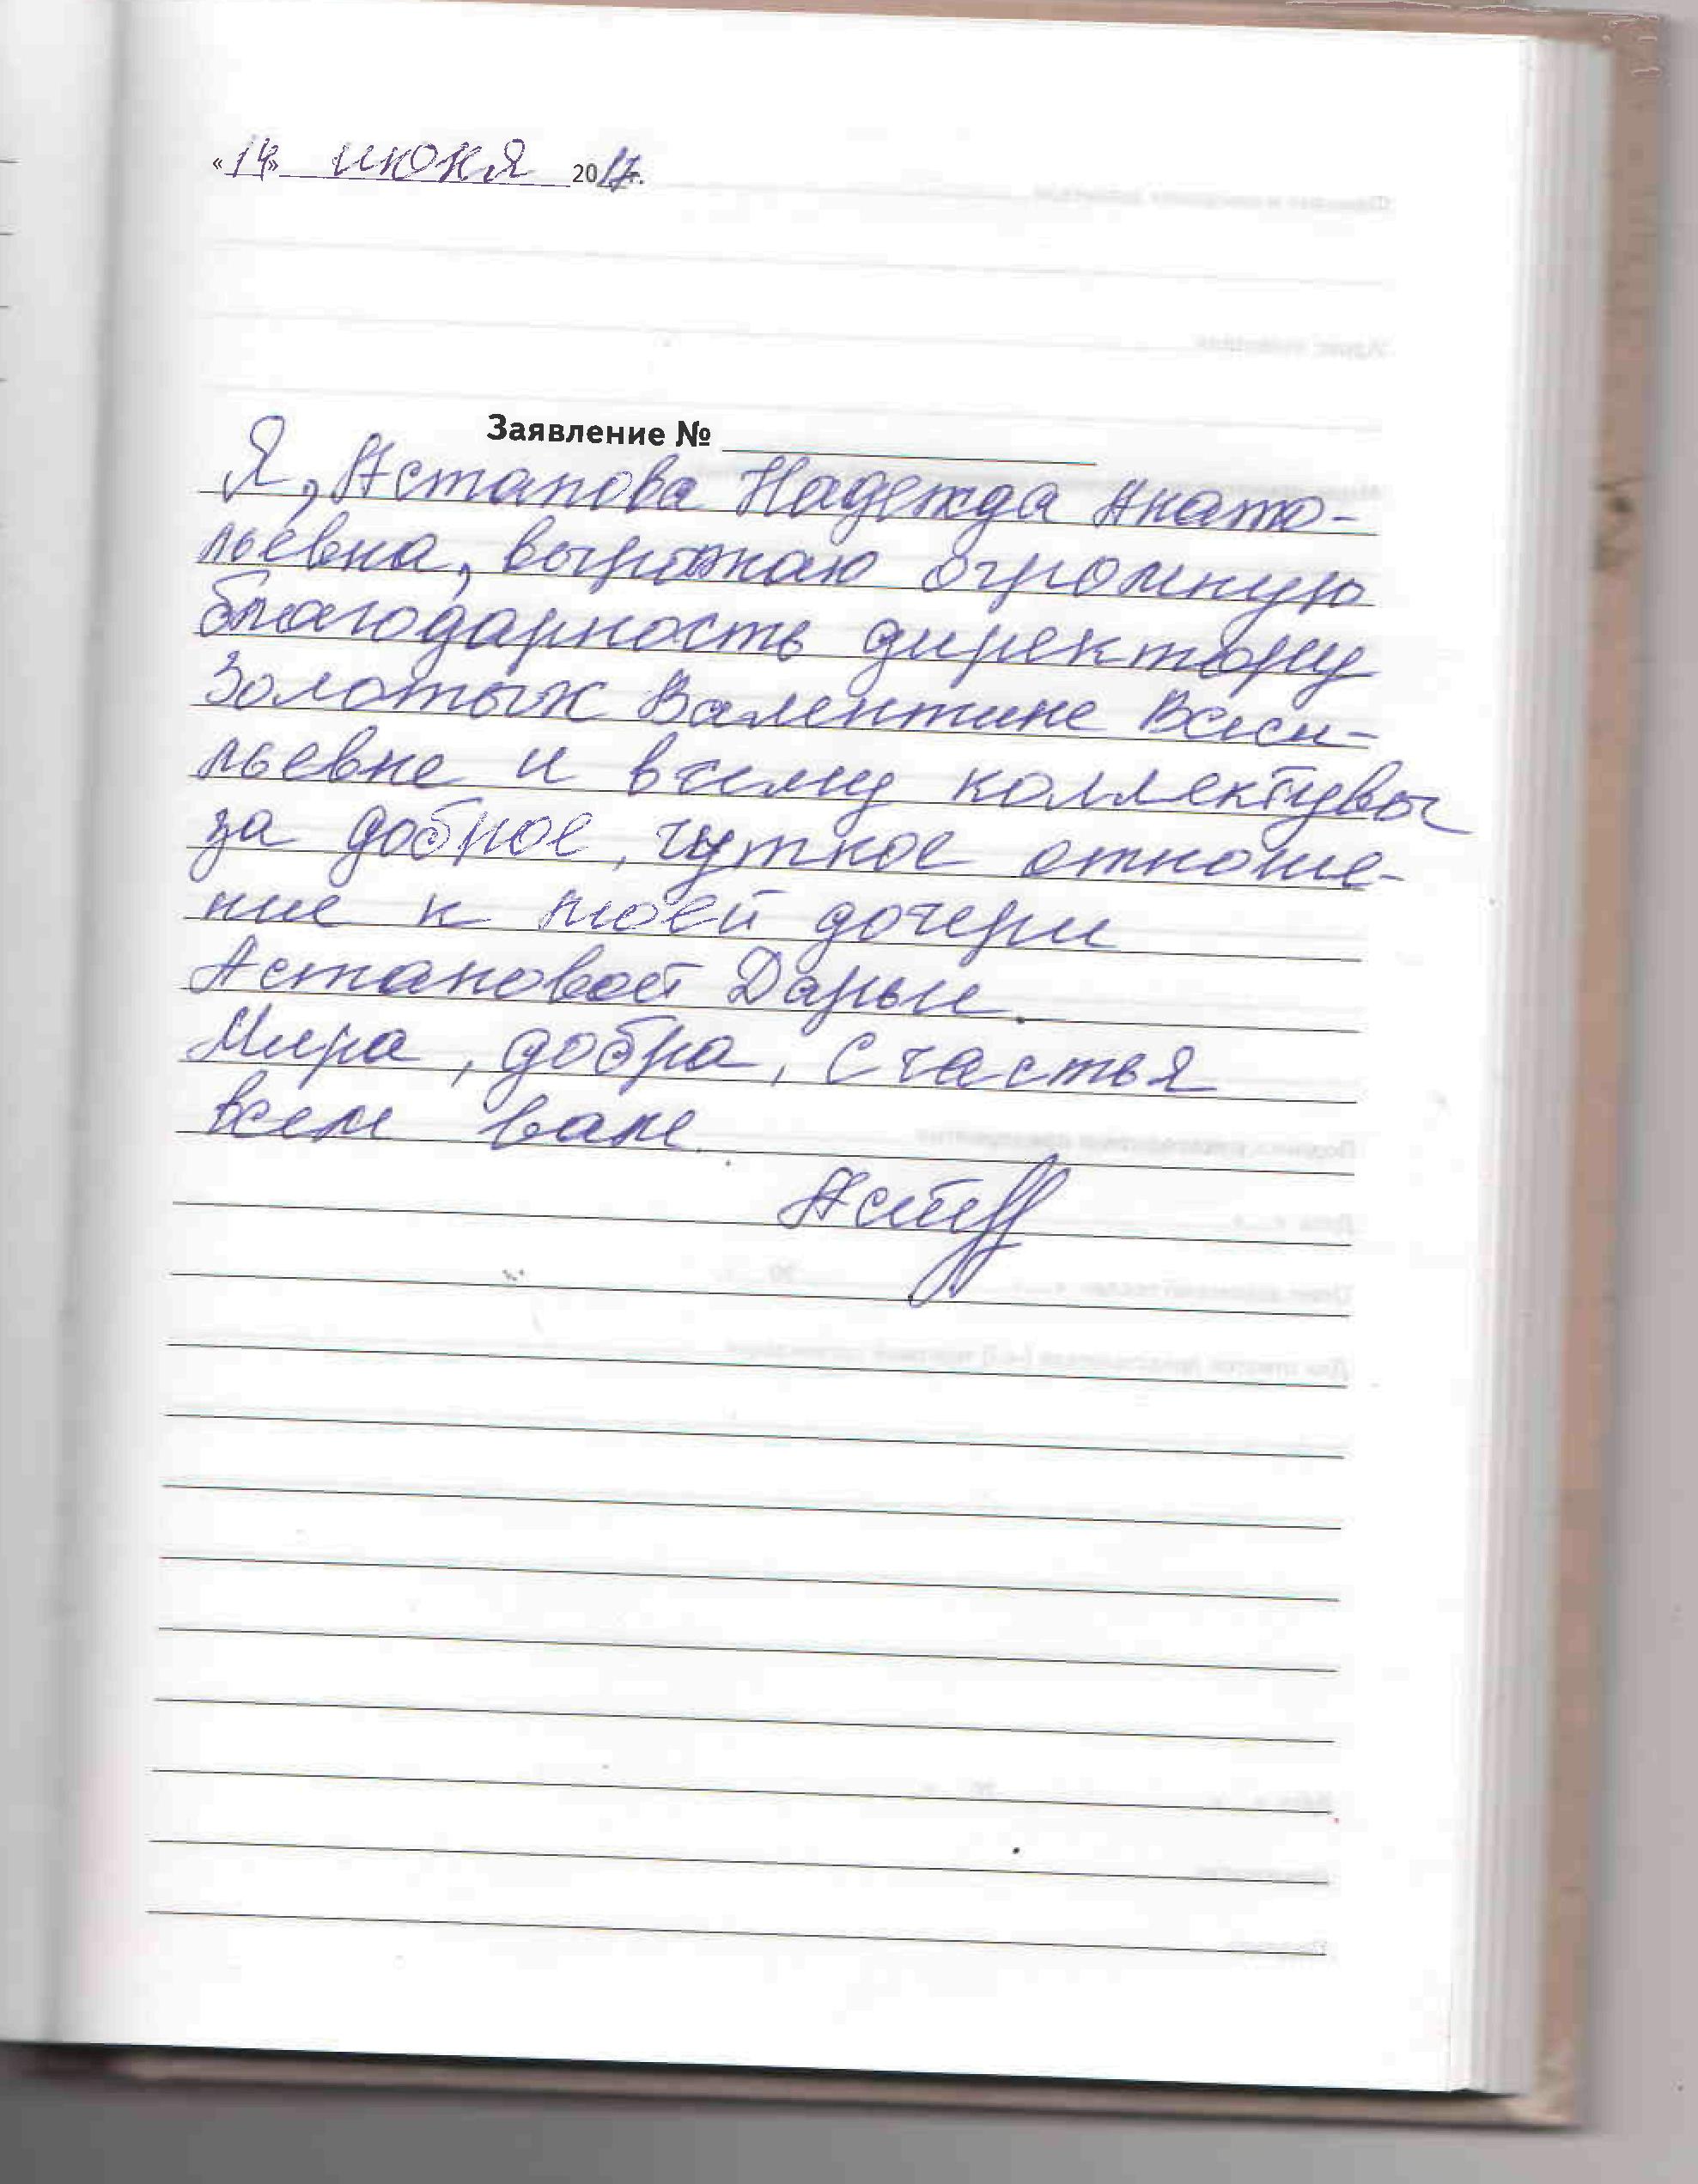 «14» июня 2017г.
Заявление №
Я, Астапова Надежда Анато-
льевна, выражаю огромную
благодарность директору
Золотых Валентине Васи-
льевне и всему коллективу
за доброе, чуткое отноше-
ние к моей дочери
Астаповой Дарьи.
Мира, добра, счастья
всем вам.